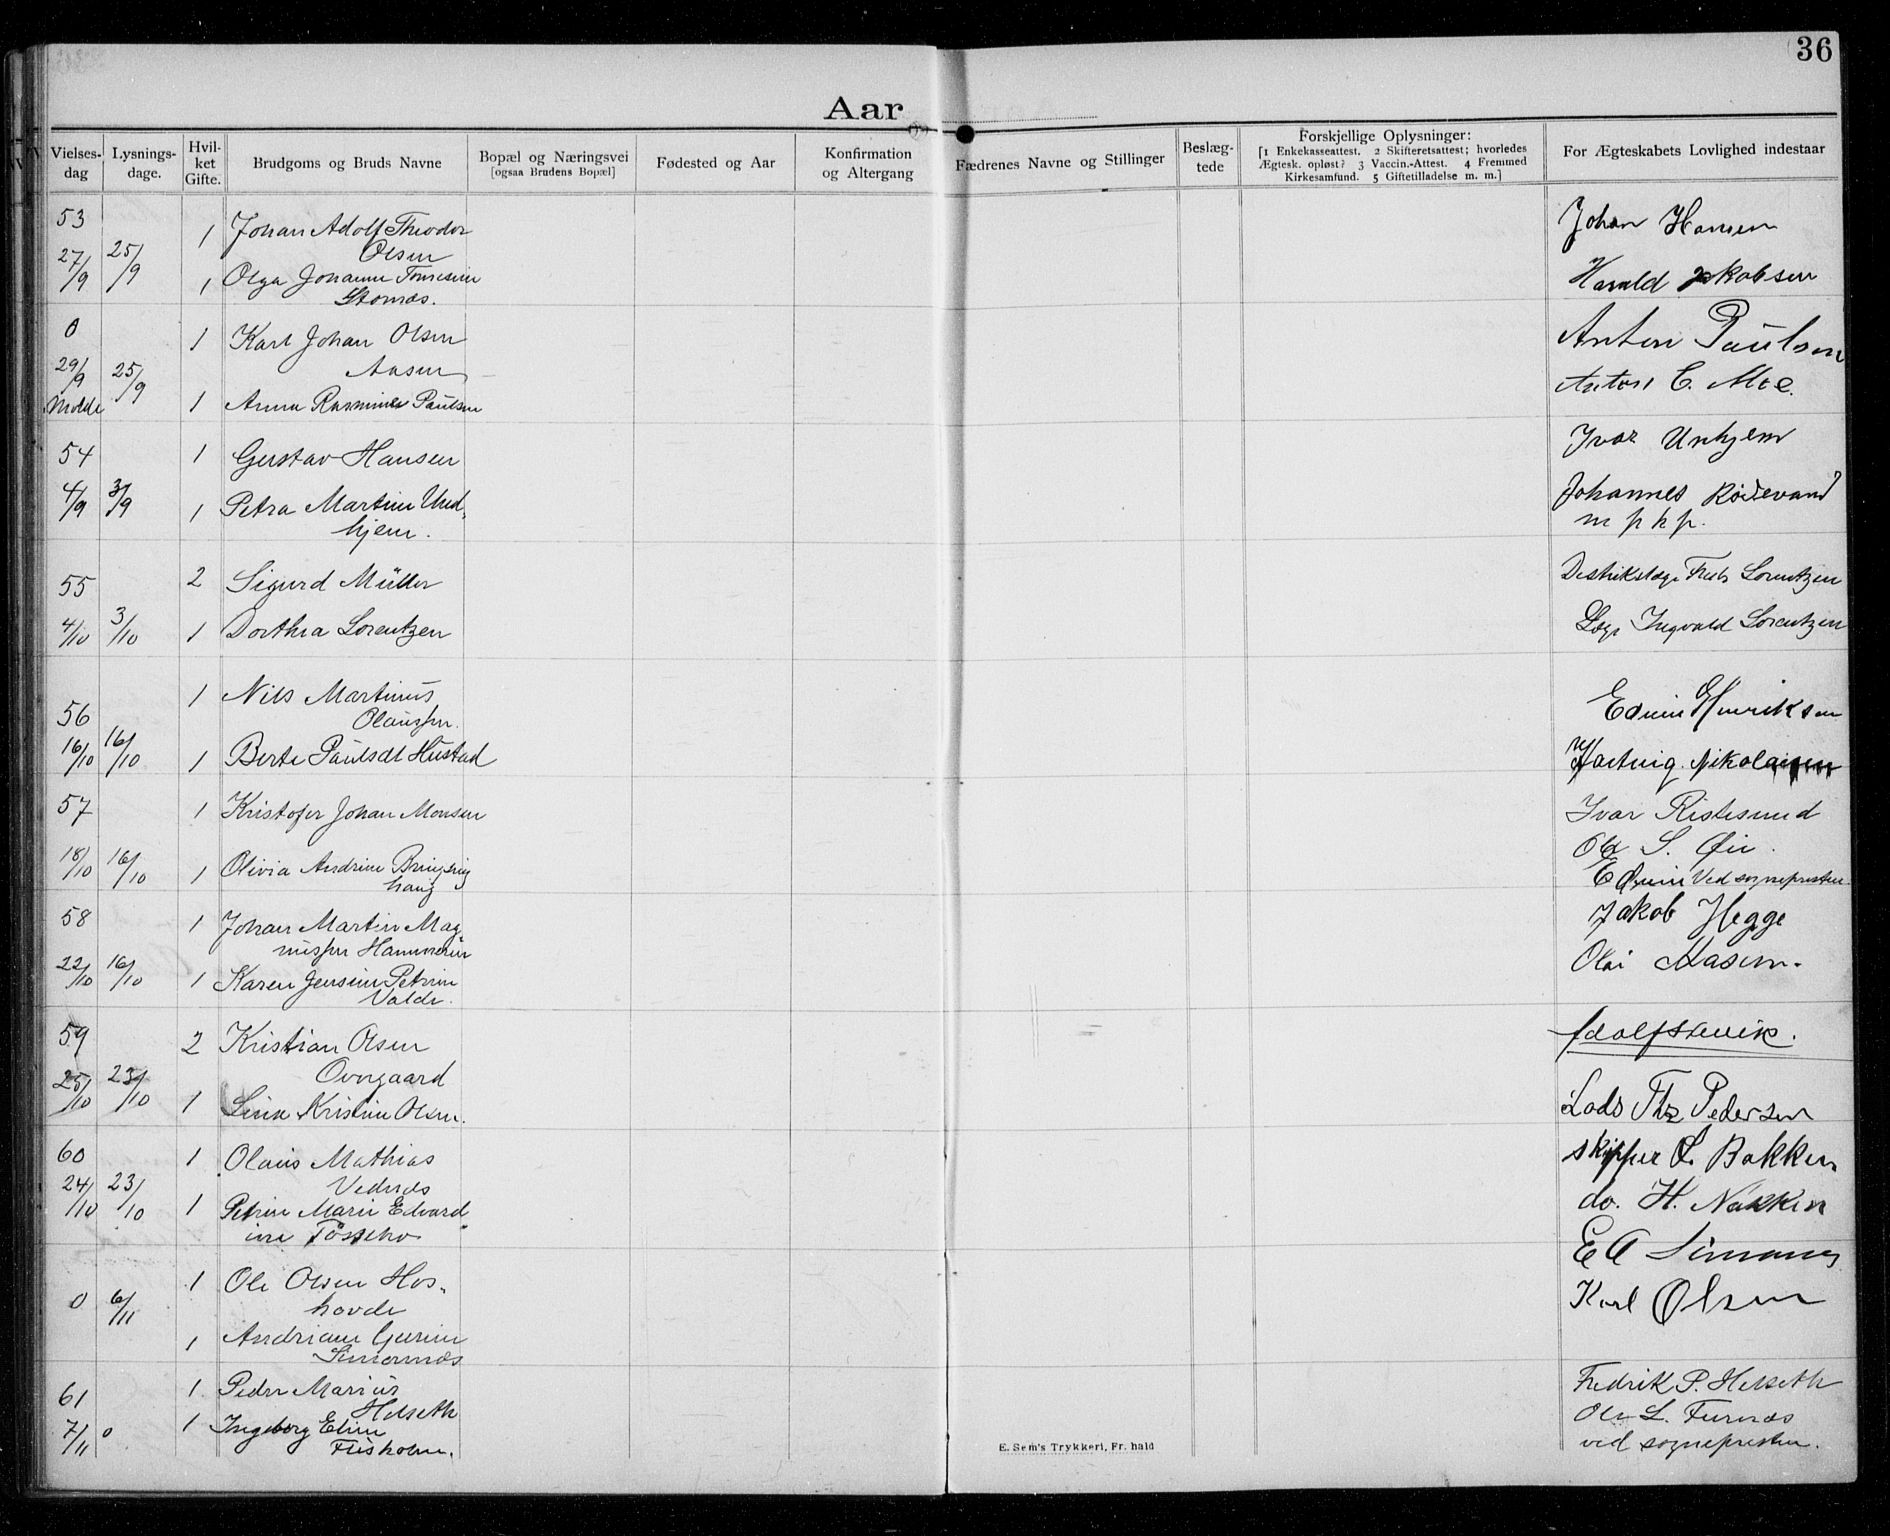 36
Aar
Vielses-dag
Lysnings-dage.
Hvil-ket Gifte.
Brudgoms og Bruds Navne
Bopæl og Næringsvei
[ogsaa Brudens Bopæl]
Fødested og Aar
Konfirmation og Altergang
Fædrenes Navne og Stillinger
Beslæg-tede
Forskjellige Oplysninger:
[1 Enkekasseattest. 2 Skifteretsattest; hvorledes
Ægtesk. opløst? 3 Vaccin.-Attest. 4 Fremmed
Kirkesamfund. 5 Giftetilladelse m. m.]
For Ægteskabets Lovlighed indestaar
53
27/9 25/9
1 Johan Adolf Theodor
Olsen
1 Olga Johanne Tomesine
Stornæs.
Johan Hansen
Harald Jakobsen
0
29/9 25/9
Molde
1 Karl Johan Olsen
Aasen
1 Anna Rasmine Paulsen
Anton Paulsen
Anton C. Moe.
54
4/9 3/9
1 Gustav Hansen
1 Petra Martine Und-
hjem.
Ivar Unhjem
Johannes Rødevand
m p h p.
55
4/10 3/10
2 Sigurd Müller
1 Dorthea Lorentzen
Distrikslæge Lorentzen
Læge Ingvald Lorentzen
56
16/10 16/10
1 Nils Martinus
Olaussen.
1 Berte Paulsdt Hustad
Edvin Henriksen
Hartvig Nikolaisen
57
18/10 16/10
1 Kristofer Johan Monsen
1 Olivia Andrine Bringsing
haug
Ivar Ristesund
Ola S. Øie.
Edvin Ved sognepresten
58
22/10 16/10
1 Johan Martin Mag
nussen Hammerun
1 Karen Jensine Petrine
Valde.
Jakob Hegge
Olai Aasen.
59
25/10 23/10
2 Kristian Olsen
Ovrgaard
1 Lina Kristine Olsen.
Adolfsrevik.
Lods Thr Pedersen
60
24/10 23/10
1 Olaus Mathias
Vednæs
1 Petrine Marie Edvard
ine Tøssebro
skipper L. Bakken
do. H. Nakken
0 6/11
1 Ole Olsen Hos-
havde
1 Andriane Gurine
Simonnæs
E A Simonnes
Karl Olsen
61
7/11 0
1 Peder Marius
Helseth
1 Ingeborg Eline
Frisholm.
Fredrik P. Helseth
Ole L. Furnæs
ved sognepresten.
E. Sem's Trykkeri, Fr. hald